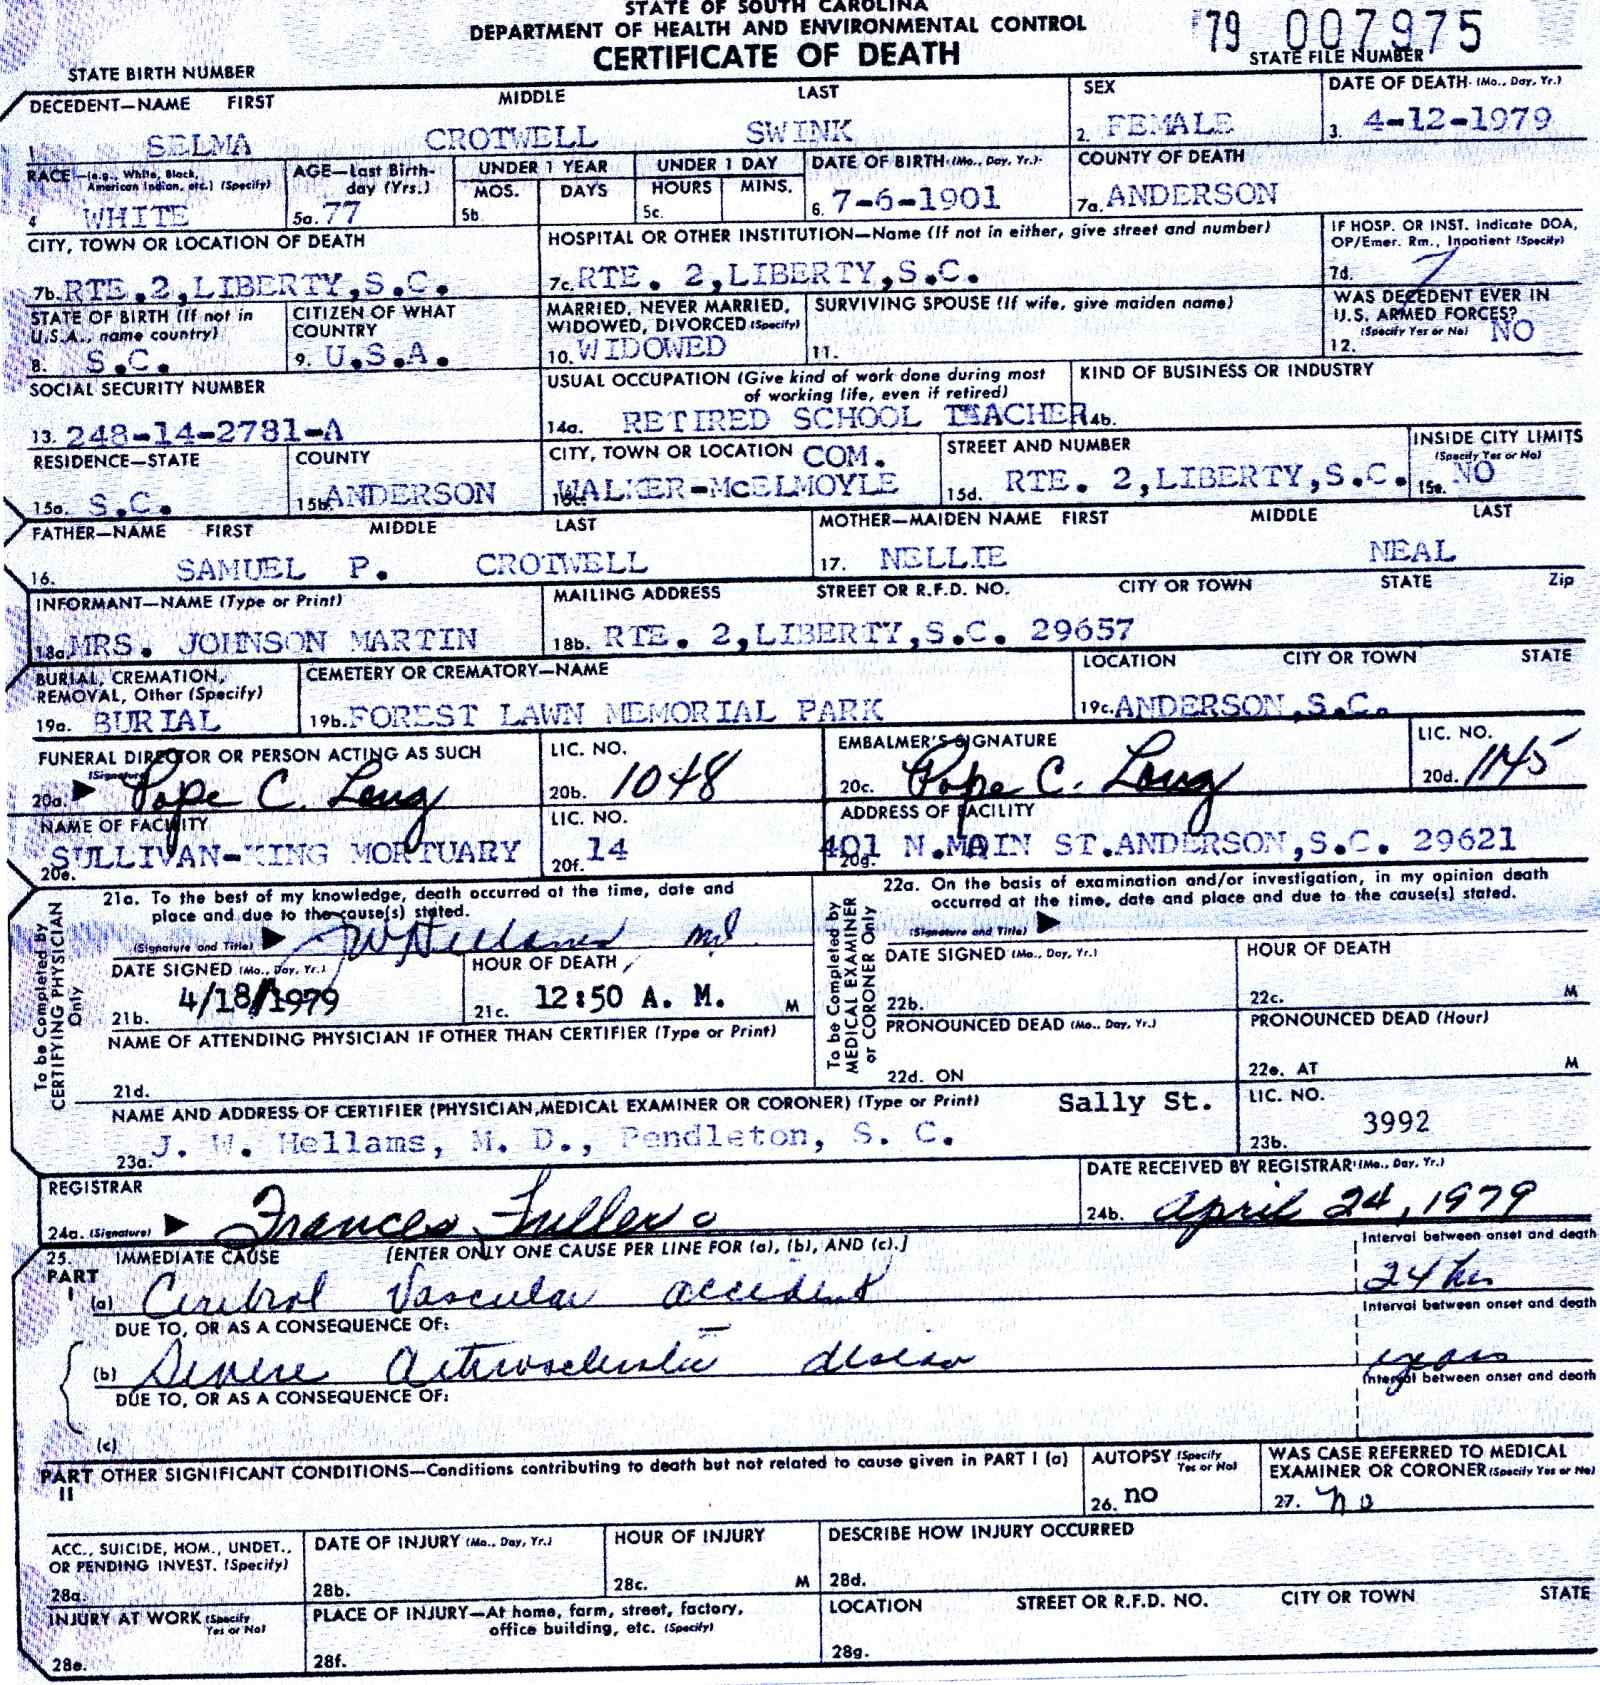 STATE OF SOUTH CAROLINA
DEPARTMENT OF HEALTH AND ENVIRONMENTAL CONTROL
CERTIFICATE OF DEATH
79 007975
STATE BIRTH NUMBER
STATE FILE NUMBER
DECEDENT—NAME FIRST MIDDLE LAST
1. SELMA CROTWELL SWINK
SEX
2. FEMALE
DATE OF DEATH (Mo., Day, Yr.)
3. 4-12-1979
RACE—(e.g., White, Black, American Indian, etc.) (Specify)
4 WHITE
AGE—Last Birthday (Yrs.)
5a. 77
UNDER 1 YEAR
MOS. DAYS
5b.
UNDER 1 DAY
HOURS MINS.
5c.
DATE OF BIRTH (Mo., Day, Yr.)
6. 7-6-1901
COUNTY OF DEATH
7a. ANDERSON
CITY, TOWN OR LOCATION OF DEATH
7b. RTE.2,LIBERTY,S.C.
HOSPITAL OR OTHER INSTITUTION—Name (If not in either, give street and number)
7c. RTE. 2,LIBERTY,S.C.
IF HOSP. OR INST. Indicate DOA, OP/Emer. Rm., Inpatient (Specify)
7d. 7
STATE OF BIRTH (If not in U.S.A., name country)
8. S.C.
CITIZEN OF WHAT COUNTRY
9. U.S.A.
MARRIED, NEVER MARRIED, WIDOWED, DIVORCED (Specify)
10. WIDOWED
SURVIVING SPOUSE (If wife, give maiden name)
11.
WAS DECEDENT EVER IN U.S. ARMED FORCES?
(Specify Yes or No) NO
12.
SOCIAL SECURITY NUMBER
13. 248-14-2781-A
USUAL OCCUPATION (Give kind of work done during most of working life, even if retired)
14a. RETIRED SCHOOL TEACHER
KIND OF BUSINESS OR INDUSTRY
14b.
RESIDENCE—STATE
15a. S.C.
COUNTY
15b. ANDERSON
CITY, TOWN OR LOCATION COM.
15c. WALKER-McELMOYLE
STREET AND NUMBER
15d. RTE. 2,LIBERTY,S.C.
INSIDE CITY LIMITS
(Specify Yes or No)
15e. NO
FATHER—NAME FIRST MIDDLE LAST
16. SAMUEL P. CROTWELL
MOTHER—MAIDEN NAME FIRST MIDDLE LAST
17. NELLIE NEAL
INFORMANT—NAME (Type or Print)
18a. MRS. JOHNSON MARTIN
MAILING ADDRESS STREET OR R.F.D. NO. CITY OR TOWN STATE Zip
18b. RTE. 2,LIBERTY,S.C. 29657
BURIAL, CREMATION, REMOVAL, Other (Specify)
19a. BURIAL
CEMETERY OR CREMATORY—NAME
19b. FOREST LAWN MEMORIAL PARK
LOCATION CITY OR TOWN STATE
19c. ANDERSON,S.C.
FUNERAL DIRECTOR OR PERSON ACTING AS SUCH
(Signature)
20a. Pope C. Long
LIC. NO.
20b. 1048
EMBALMER'S SIGNATURE
20c. Pope C. Long
LIC. NO.
20d. 1145
NAME OF FACILITY
20e. SULLIVAN-KING MORTUARY
LIC. NO.
20f. 14
ADDRESS OF FACILITY
20g. 401 N.MAIN ST.ANDERSON,S.C. 29621
To be Completed by CERTIFYING PHYSICIAN Only
21a. To the best of my knowledge, death occurred at the time, date and place and due to the cause(s) stated.
(Signature and Title) JW Hellams MD
DATE SIGNED (Mo., Day, Yr.)
21b. 4/18/1979
HOUR OF DEATH
21c. 12:50 A. M. M
NAME OF ATTENDING PHYSICIAN IF OTHER THAN CERTIFIER (Type or Print)
21d.
To be Completed by MEDICAL EXAMINER or CORONER Only
22a. On the basis of examination and/or investigation, in my opinion death occurred at the time, date and place and due to the cause(s) stated.
(Signature and Title)
DATE SIGNED (Mo., Day, Yr.)
22b.
HOUR OF DEATH
22c. M
PRONOUNCED DEAD (Mo., Day, Yr.)
22d. ON
PRONOUNCED DEAD (Hour)
22e. AT M
NAME AND ADDRESS OF CERTIFIER (PHYSICIAN,MEDICAL EXAMINER OR CORONER) (Type or Print) Sally St.
23a. J. W. Hellams, M. D., Pendleton, S. C.
LIC. NO.
23b. 3992
REGISTRAR
24a. (Signature) Frances Fuller
DATE RECEIVED BY REGISTRAR (Mo., Day, Yr.)
24b. April 24, 1979
25. IMMEDIATE CAUSE [ENTER ONLY ONE CAUSE PER LINE FOR (a), (b), AND (c).]
Interval between onset and death
PART I
(a) Cerebral Vascular accident 24 hrs
DUE TO, OR AS A CONSEQUENCE OF:
Interval between onset and death
(b) Severe Arteriosclerotic disease years
DUE TO, OR AS A CONSEQUENCE OF:
Interval between onset and death
(c)
PART II
OTHER SIGNIFICANT CONDITIONS—Conditions contributing to death but not related to cause given in PART I (a)
AUTOPSY (Specify Yes or No)
26. no
WAS CASE REFERRED TO MEDICAL EXAMINER OR CORONER (Specify Yes or No)
27. no
ACC., SUICIDE, HOM., UNDET., OR PENDING INVEST. (Specify)
28a.
DATE OF INJURY (Mo., Day, Yr.)
28b.
HOUR OF INJURY
28c. M
DESCRIBE HOW INJURY OCCURRED
28d.
INJURY AT WORK (Specify Yes or No)
28e.
PLACE OF INJURY—At home, farm, street, factory, office building, etc. (Specify)
28f.
LOCATION STREET OR R.F.D. NO. CITY OR TOWN STATE
28g.